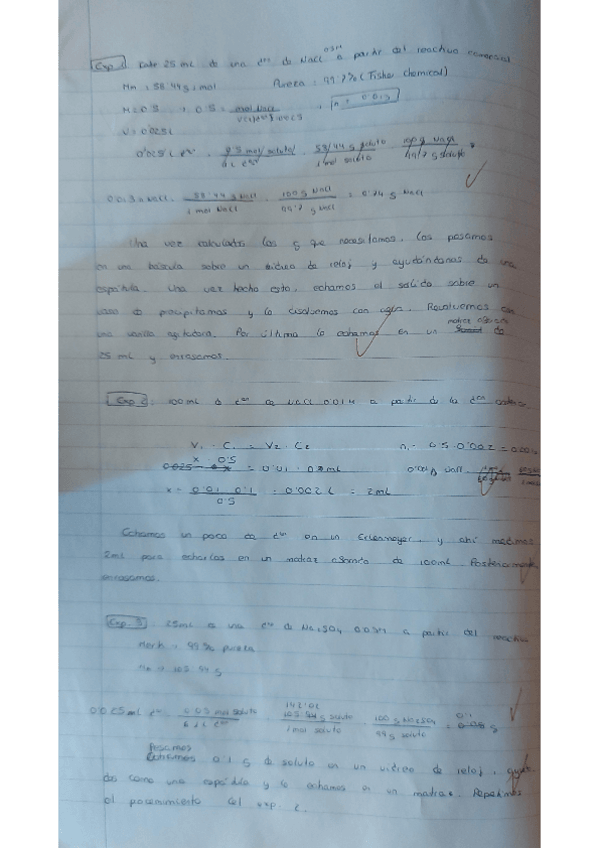 Exp. 1 25 mL de una dón de NaCl 0'5M a partir del reactivo comercial
Mm = 58'44 g/mol Pureza: 99'7% (Fisher Chemical)
M = 0'5 → 0'5 = mol NaCl
V = 0'025 L
0'025 L dón · 0'5 mol soluto / 1 L dón · 58'44 g soluto / 1 mol soluto · 100 g NaCl / 99'7 g soluto
58'44 g NaCl / 1 mol NaCl · 100 g NaCl / 99'7 g NaCl = 0'74 g NaCl
Una vez calculados los g que necesitamos, los pesamos
en una báscula sobre un vidreo de reloj y ayudándonos de una
espátula. Una vez hecho esto, echamos el sólido sobre un
vaso de precipitamos y lo disolvemos con agua. Revolvemos con
una varilla agitadora. Por último lo echamos en un matraz aforado de
25 mL y enrasamos.
Exp 2 100 mL de dón de NaCl 0'01M a partir de la dón anterior
V₁ · C₁ = V₂ · C₂ n = 0'5 · 0'002 = 0'001
x · 0'5 = 0'01 · 0'1
x = 0'01 · 0'1 / 0'5 = 0'002 L = 2 mL
Echamos un poco de dón en un Erlenmeyer, y ahí medimos
2mL para echarlos en un matraz aforado de 100mL. Posteriormente
enrasamos.
Exp. 3 25mL de una dón de Na₂SO₄ 0'03M a partir del reactivo
Merk → 99% pureza
0'025 mL dón · 0'03 mol soluto / 1 L dón · 142'04 g soluto / 1 mol soluto · 100 g Na₂SO₄ / 99 g soluto = 0'1 g
Pesamos
0'1 g de soluto en un vidreo de reloj,
dos como una espátula y lo echamos en un matraz. Repetimos
el pocemimiento del exp. 2.